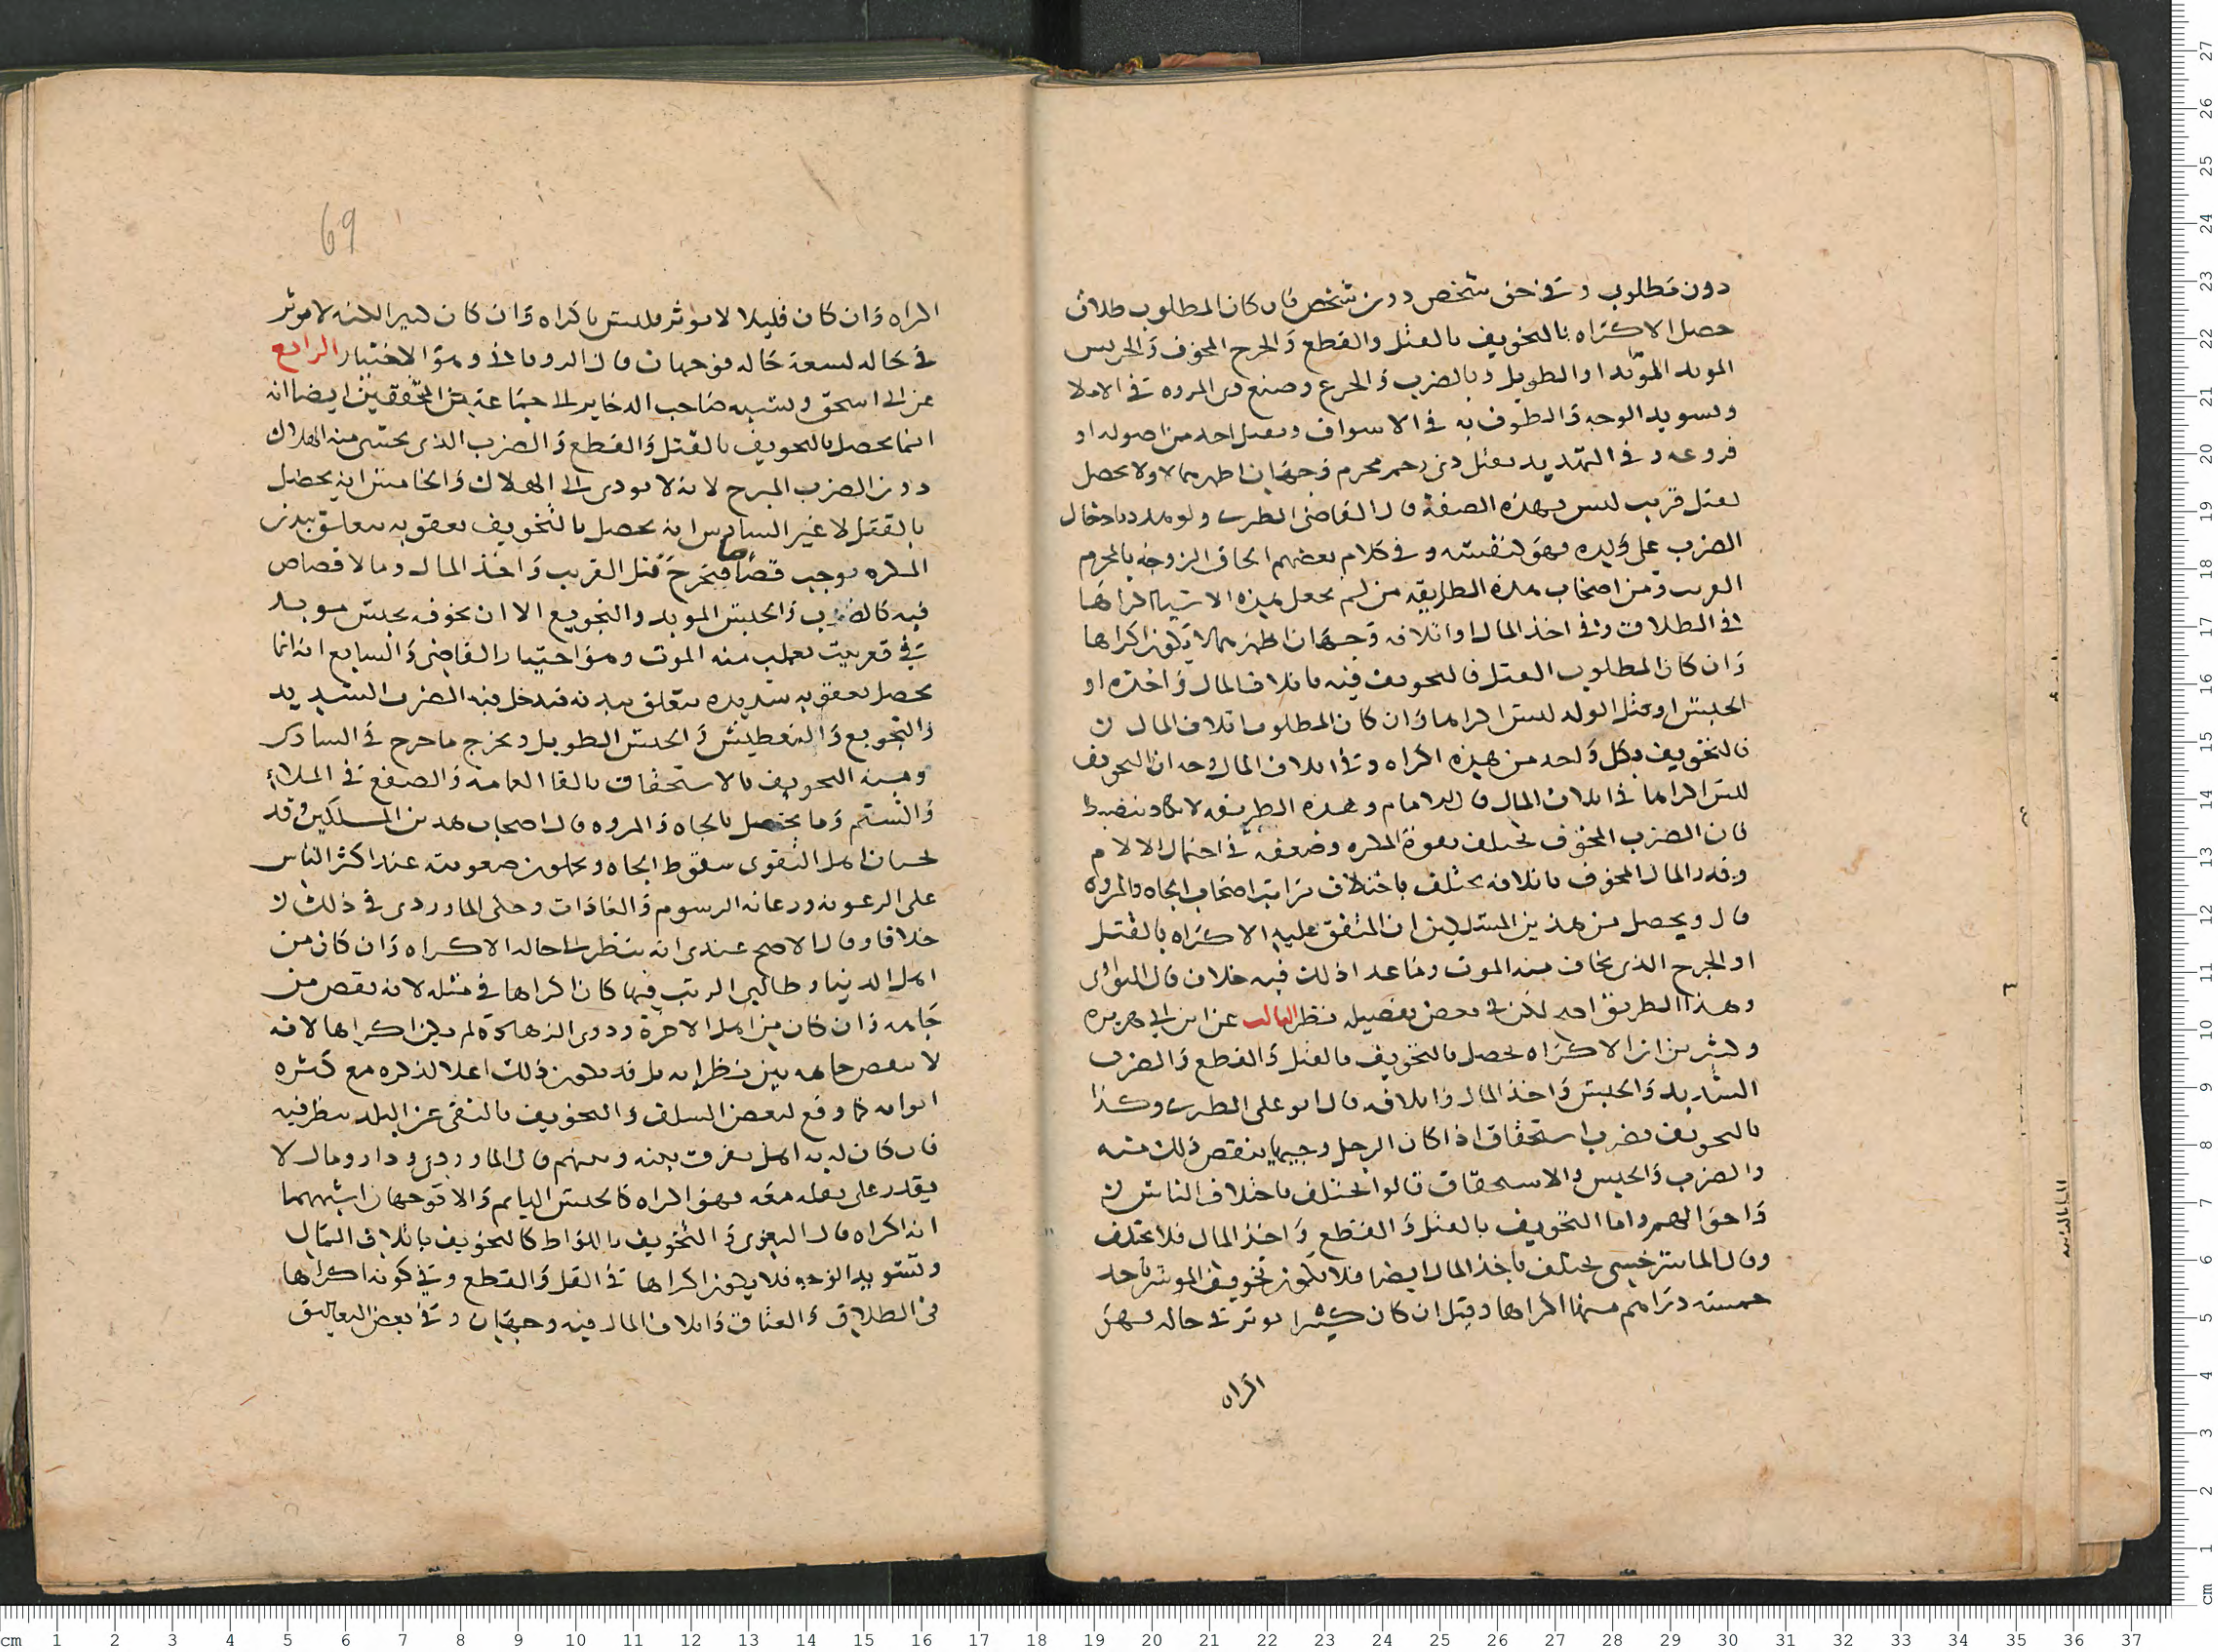 دون مطلوب وفي حق شخص دون شخص فان كان المطلوب طلاق
حصل الاكراه بالتخويف بالقتل والقطع والجرح المخوف والحبس
الموبد المؤبد او الطويل وبالضرب والجرع وصنع ذى المروه في الملا
وتسويد الوجه والطوف به في الاسواق وبقتل احد من اصوله او
فروعه وفي التهديد بقتل ذى رحم محرم وجهان اظهرهما لا ولا يحصل
بقتل قريب ليس بهذه الصفة قال القاضى الطبرى ولو هدده بادخال
الضرب على ولده فهو كنفسه وفي كلام بعضهم الحاق الزوجه بالمحرم
القريب ومن اصحاب هذه الطريقه من لم يجعل هذه الاشيا اكراها
في الطلاق وفي اخذ المال او اتلافه وجهان اظهرهما لا يكون اكراها
وان كان المطلوب القتل فالتخويف فيه باتلاف المال واخذه او
الحبس او قتل الولد ليس اكراها وان كان المطلوب اتلاف المال
فالتخويف بكل واحد من هذه اكراه وفي اتلاف المال وجه ان التخويف
ليس اكراها في اتلاف المال قال الامام وهذه الطريقه لا تكاد تنضبط
فان الضرب المخوف يختلف بقوة المكره وضعفه في احتمال الالام
وقدر المال المخوف باتلافه يختلف باختلاف مراتب اصحاب الجاه والمروه
قال ويحصل من هذين المسلكين ان المتفق عليه الاكراه بالقتل
او الجرح الذى يخاف منه الموت وما عدا ذلك فيه خلاف قال النواوى
وهذا الطريق اصح لكن في بعض تفصيله نظر الثالث عن ابن ابى هريره
وكثيرين ان الاكراه يحصل بالتخويف بالقتل والقطع والضرب
الشديد والحبس واخذ المال واتلافه قال ابو على الطبرى وكذا
بالتخويف بضرب استخفاف اذا كان الرجل وجيها ينقص ذلك منه
والضرب والحبس والاستحقاق قالوا يختلف باختلاف الناس
واحوالهم واما التخويف بالقتل والقطع واخذ المال فلا يختلف
وقال الماسرخسى يختلف باخذ المال ايضا فلا يكون تخويف الموسر باخذ
خمسة دراهم منها اكراها وقيل ان كان كثيرا يوثر في حاله فهو
اكراه
69
اكراه وان كان قليلا لا يوثر فليس باكراه وان كان كثيرا لكنه لا يوثر
في حاله لسعة حاله فوجهان قال الرويانى وهو الاختيار الرابع
عن ابى اسحق ونسبه صاحب الذخاير الى جماعة من المحققين ايضا انه
انما يحصل بالتخويف بالقتل والقطع والضرب الذى يخشى منه الهلاك
دون الضرب المبرح لانه لا يودى الى الهلاك والخامس انه يحصل
بالقتل لا غير السادس انه يحصل بالتخويف بعقوبه يتعلق ببدن
المكره يوجب قصاصا فيخرج قتل القريب واخذ المال وما لا قصاص
فيه كالضرب والحبس الموبد والتجويع الا ان يخوفه بحبس موبد
في قعر بيت يغلب منه الموت وهو اختيار القاضى والسابع انه انما
يحصل بعقوبه شديده يتعلق ببدنه فيدخل فيه الضرب الشديد
والتجويع والتعطيش والحبس الطويل ويخرج ما خرج في السادس
ومنه التخويف بالاستخفاف بالقا العمامه والصفع في الملاء
والشتم وما يختص بالجاه والمروه قال اصحاب هذين المسلكين وقد
يختار اهل التقوى سقوط الجاه ويحملون صعوبته عند اكثر الناس
على الرعونه ورعاية الرسوم والعادات وحكى الماوردى في ذلك
خلافا وقال الاصح عندى انه ينظر الى حاله الاكراه وان كان من
اهل الدنيا وطالبى الرتب فيها كان اكراها في مثله لانه نقص من
جاهه وان كان من اهل الاخرة وذوى الزهادة لم يكن اكراها لانه
لا ينقص جاهه بين نظرايه بل قد يكون ذلك اعلا لذكره مع كثره
ثوابه كما وقع لبعض السلف والتخويف بالنفى عن البلد ينظر فيه
فان كان له به اهل يفرق بينه وبينهم قال الماوردى ودار ومال لا
يقدر على نقله معه فهو اكراه كالحبس الدايم والا فوجهان اشبههما
انه اكراه قال البغوى والتخويف باللواط كالتخويف باتلاف المال
وتسويد الوجه فلا يكون اكراها في القتل والقطع وفي كونه اكراها
فى الطلاق والعتاق واتلاف المال فيه وجهان وفي بعض التعاليق